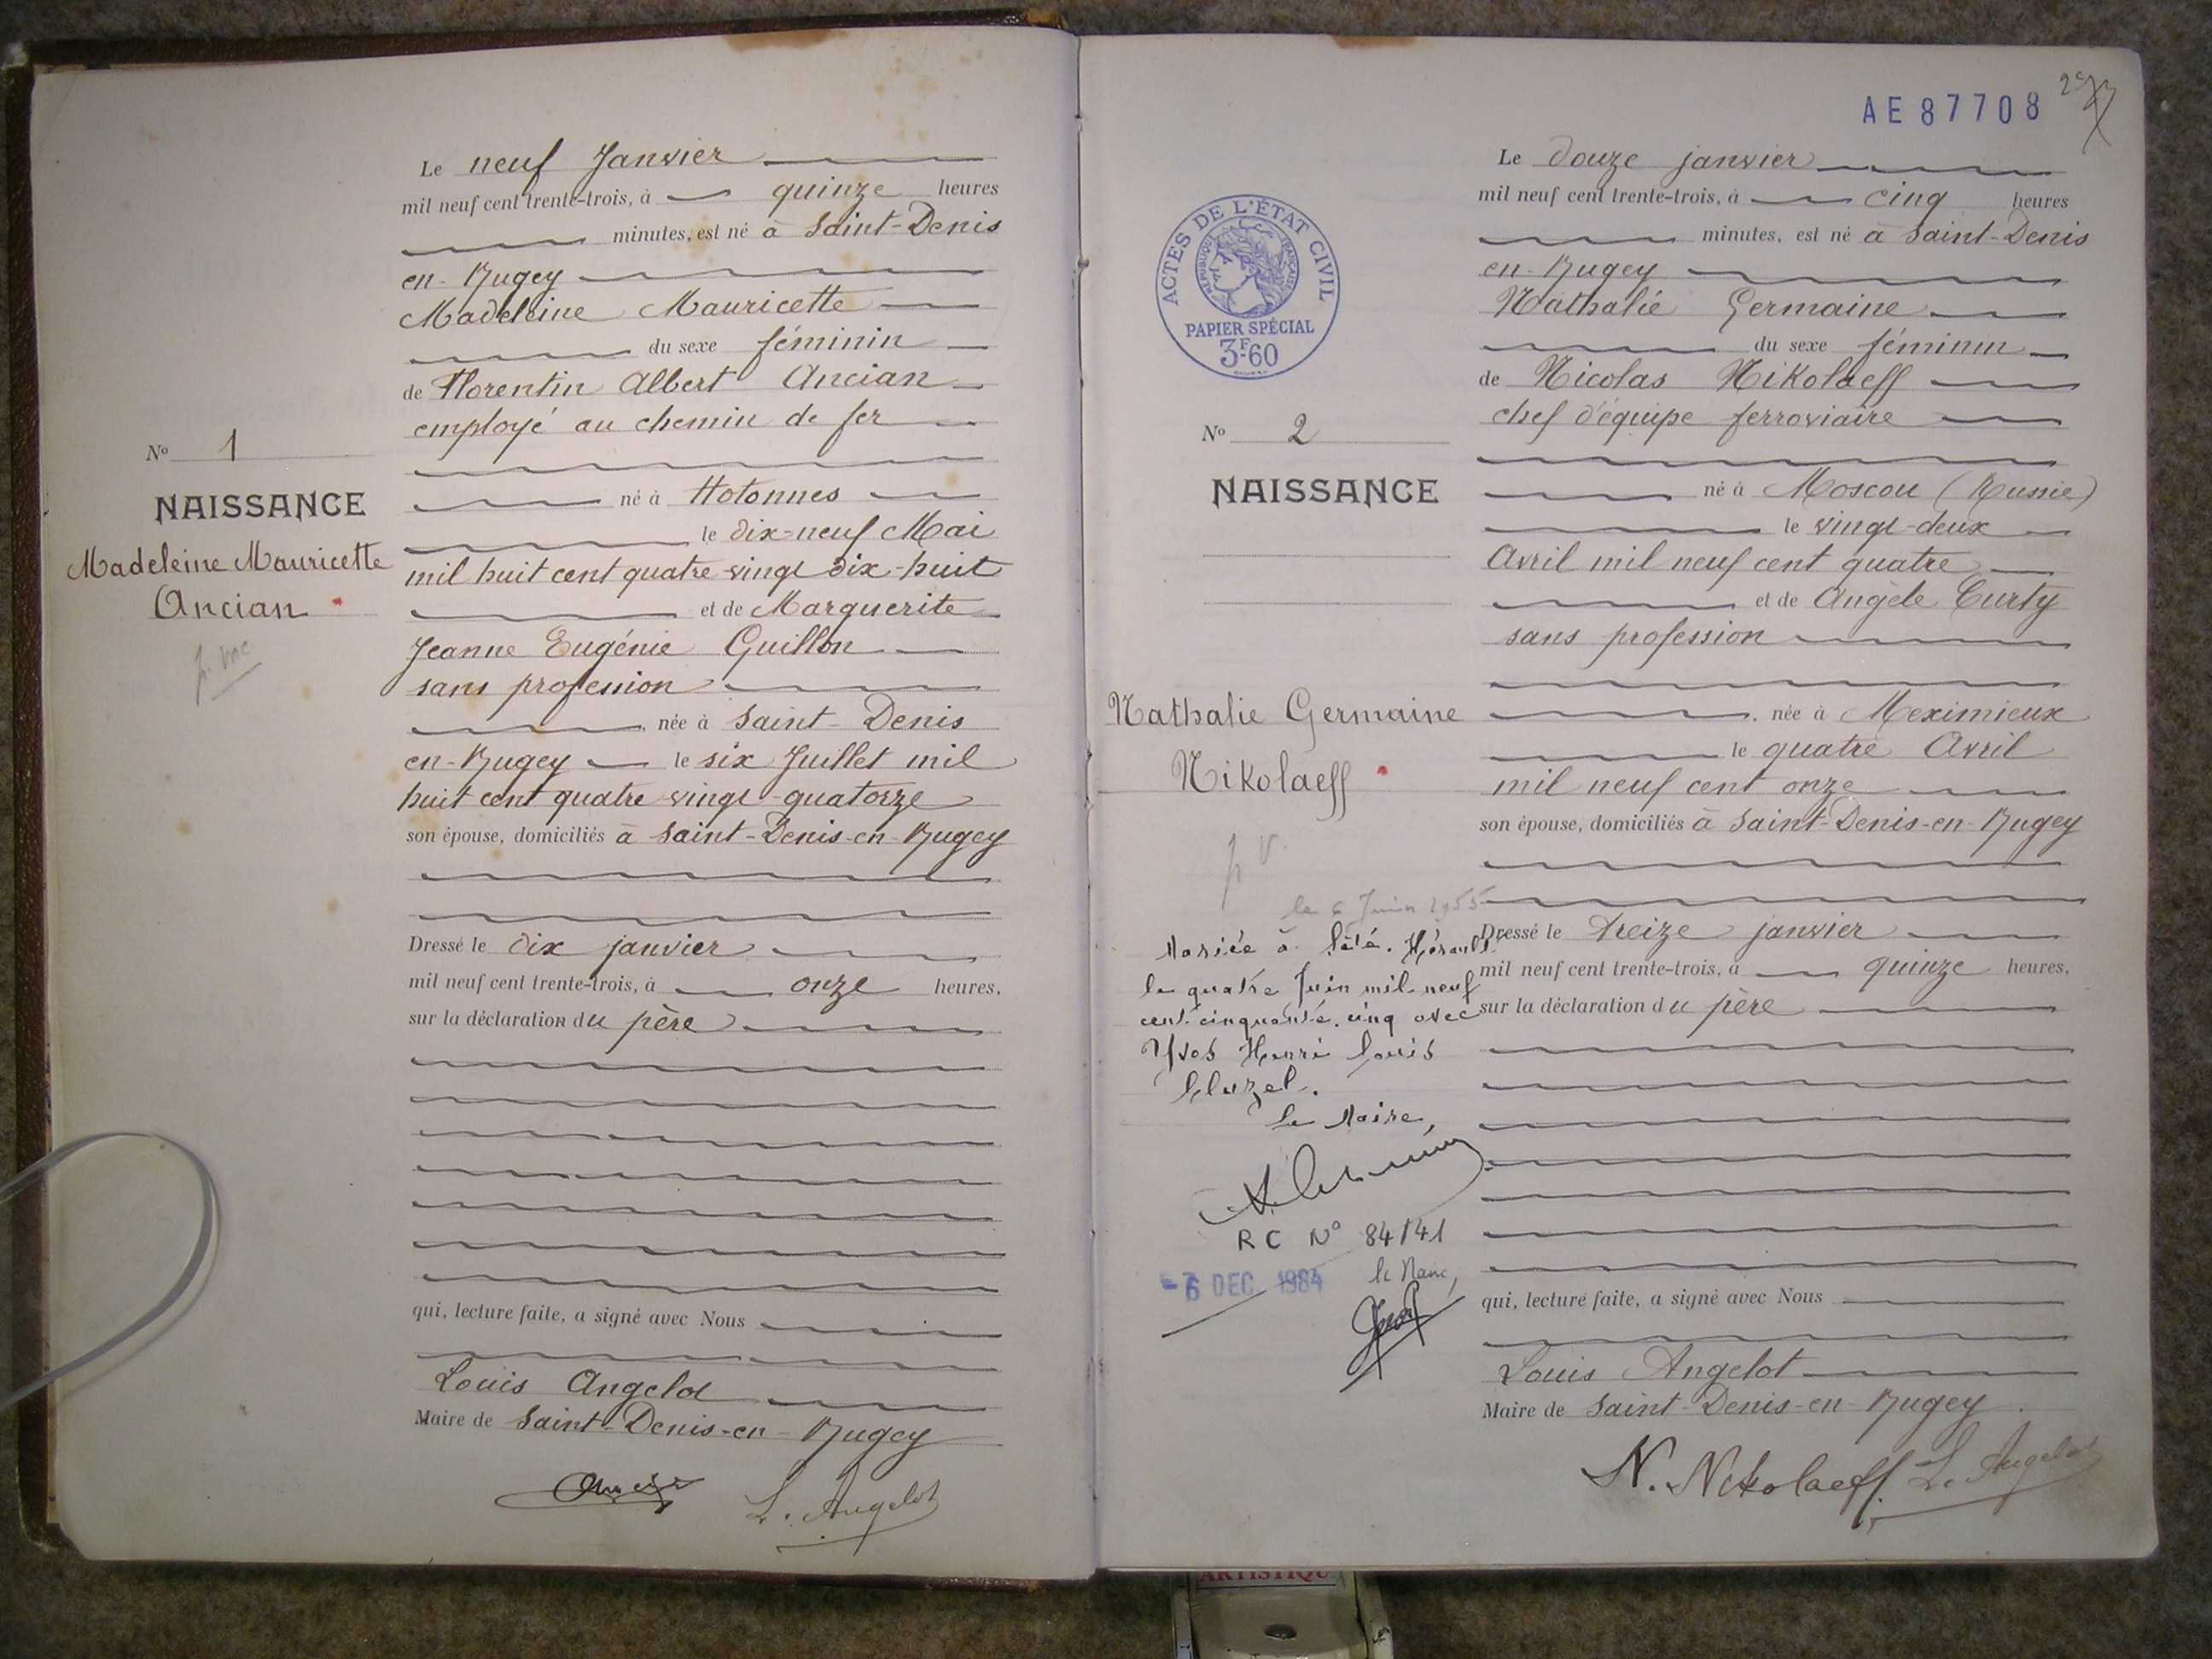 Le neuf Janvier
mil neuf cent trente-trois, à quinze heures
minutes, est né à Saint-Denis
en-Bugey
Madeleine Mauricette
du sexe féminin
de Florentin Albert Ancian
employé au chemin de fer
né à Hotonnes
le dix-neuf Mai
mil huit cent quatre vingt dix-huit
et de Marguerite
Jeanne Eugénie Guillon
sans profession
, née à Saint-Denis
en-Bugey le six Juillet mil
huit cent quatre vingt-quatorze
son épouse, domiciliés à Saint-Denis-en-Bugey
Dressé le dix janvier
mil neuf cent trente-trois, à onze heures,
sur la déclaration du père
qui, lecture faite, a signé avec Nous
Louis Angelot
Maire de Saint-Denis-en-Bugey
L. Angelot
No 1
NAISSANCE
Madeleine Mauricette
Ancian
AE 87708
ACTES DE L'ÉTAT CIVIL
RÉPUBLIQUE FRANÇAISE
PAPIER SPÉCIAL
3F60
No 2
NAISSANCE
Nathalie Germaine
Nikolaeff
le 6 Juin 1955
Mariée à Sète. Hérault
le quatre Juin mil neuf
cent cinquante cinq avec
Yves Henri Louis
Cluzel.
Le Maire,
RC No 84/41
-6 DEC 1984 le Maire,
Le douze janvier
mil neuf cent trente-trois, à cinq heures
minutes, est né à Saint-Denis
en-Bugey
Nathalie Germaine
du sexe féminin
de Nicolas Nikolaeff
chef d'équipe ferroviaire
né à Moscou (Russie)
le vingt-deux
Avril mil neuf cent quatre
et de Angèle Curty
sans profession
, née à Meximieux
le quatre Avril
mil neuf cent onze
son épouse, domiciliés à Saint-Denis-en-Bugey
Dressé le treize janvier
mil neuf cent trente-trois, à quinze heures,
sur la déclaration du père
qui, lecture faite, a signé avec Nous
Louis Angelot
Maire de Saint-Denis-en-Bugey
N. Nikolaeff. L. Angelot
ARTISTIQU